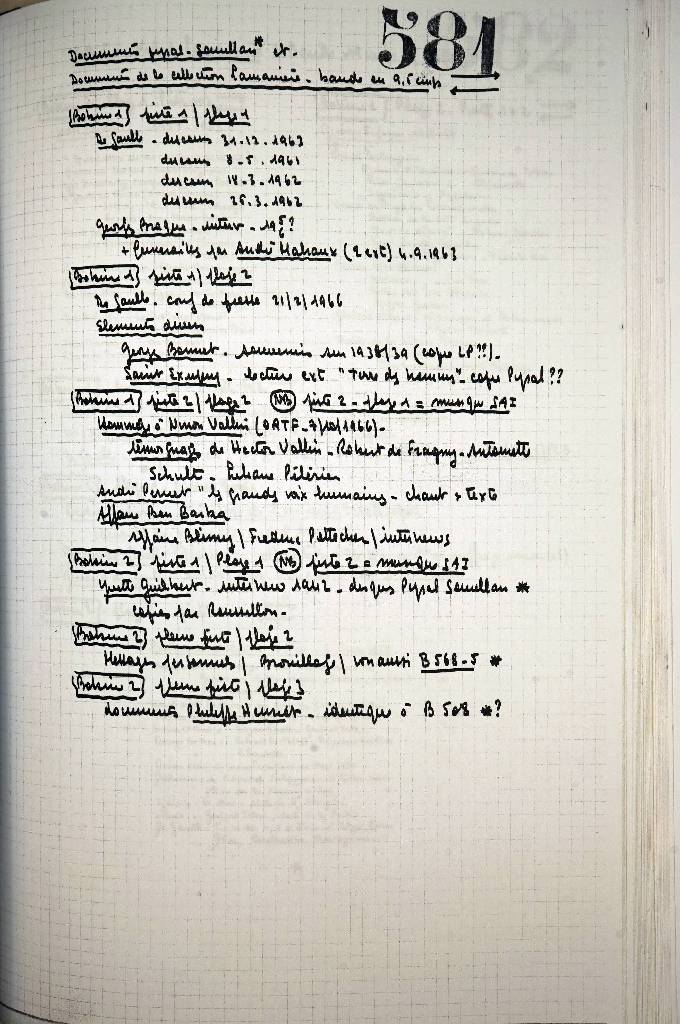 581
Documents pyral - Semellan* et.
Documents de la collection - bande en 9,5 cm/s
Bobine 1 piste 1 / plage 1
De Gaulle - discours 31.12.1963
discours 8.5.1961
discours 18.3.1962
discours 26.3.1962
Georges Braque - interv -
+ funerailles par André Malraux (2 ext) 4.9.1963
Bobine 1 piste 1 / plage 2
De Gaulle - conf de presse 21/2/1966
Elements divers
George Bonnet - souvenirs sur 1938/39 (copie LP??)-
Saint Exupery - lecture ext "Terre des hommes" - copie Pyral ??
Bobine 1 piste 2 / plage 2 NB piste 2 - plage 1 = musique SAI
Hommage à Ninon Vallin (ORTF - 7/10/1966)-
témoignages de Hector Vallin - Robert de Fragny - Antoinette
Schulte -
André Pernet "les grands voix humaines - chant + texte
Affaire Ben Barka
Affaire / Frederic / interviews
Bobine 2 piste 1 / Plage 1 NB piste 2 = musique SAI
Yvette Guilbert - interview 1942 - disques Pyral Semellan *
copies par Roussillon -
Bobine 2 pleine piste / plage 2
Messages personnels / Brouillage / voir aussi B 568-5 *
Bobine 2 pleine piste / plage 3
documents Philippe Henriot - identique à B 508 *?